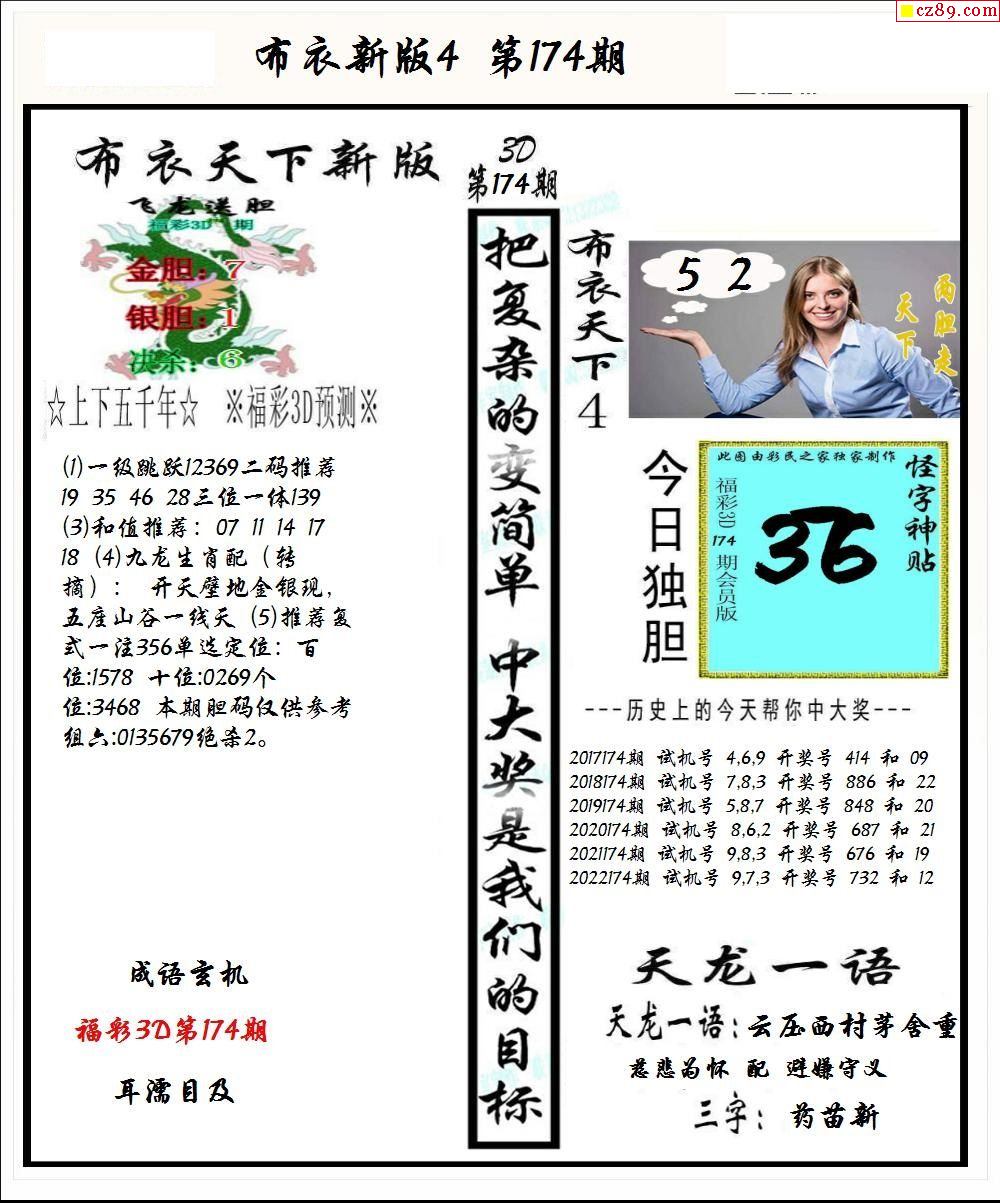 cz89.com
布衣新版4 第174期
布衣天下新版
飞龙送胆
福彩3D 期
金胆：7
银胆：1
决杀：6
☆上下五千年☆ ※福彩3D预测※
(1)一级跳跃12369二码推荐
19 35 46 28三位一体139
(3)和值推荐：07 11 14 17
18 (4)九龙生肖配（转
摘）： 开天璧地金银现，
五座山谷一线天 (5)推荐复
式一注356单选定位：百
位:1578 十位:0269个
位:3468 本期胆码仅供参考
组六:0135679绝杀2。
成语玄机
福彩3D第174期
耳濡目及
3D
第174期
把复杂的变简单 中大奖是我们的目标
布衣天下4
5 2
两胆走
天下
今日独胆
此图由彩民之家独家制作
怪字神贴
福彩3D 174 期会员版
36
---历史上的今天帮你中大奖---
2017174期 试机号 4,6,9 开奖号 414 和 09
2018174期 试机号 7,8,3 开奖号 886 和 22
2019174期 试机号 5,8,7 开奖号 848 和 20
2020174期 试机号 8,6,2 开奖号 687 和 21
2021174期 试机号 9,8,3 开奖号 676 和 19
2022174期 试机号 9,7,3 开奖号 732 和 12
天龙一语
天龙一语：云压西村茅舍重
慈悲为怀 配 避嫌守义
三字： 药苗新